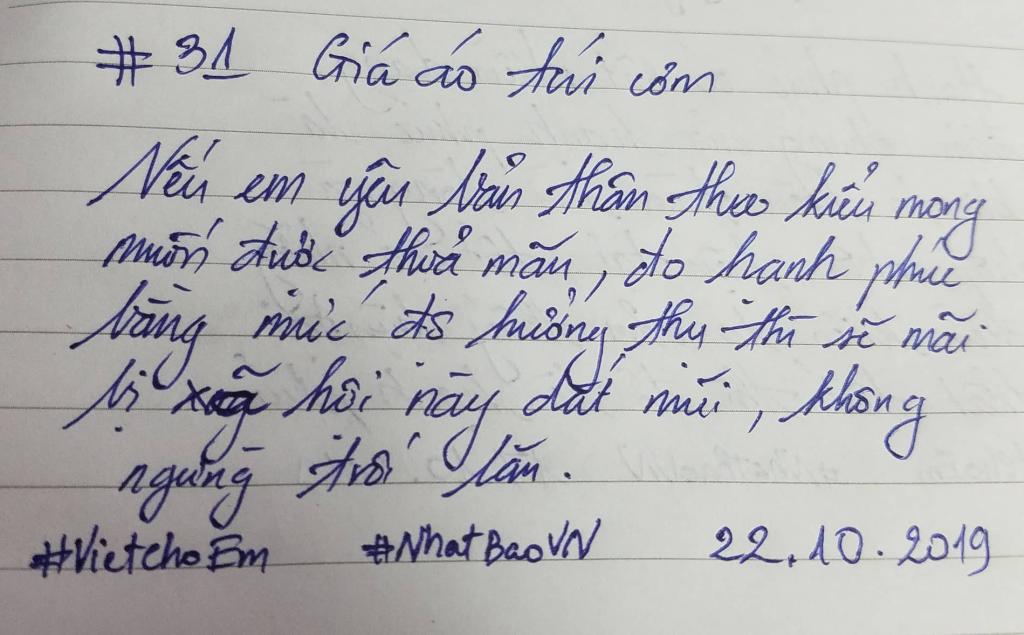 #31 Giá áo túi cơm
Nếu em yêu bản thân theo kiểu mong
muốn được thoả mãn, đo hạnh phúc
bằng mức độ hưởng thụ thì sẽ mãi
bị xã hội này dắt mũi, không
ngừng trôi lăn.
#VietchoEm #NhatBaoVN 22.10.2019